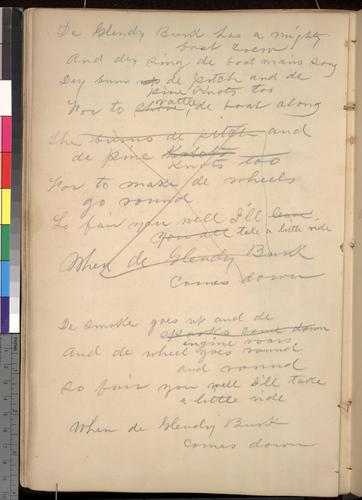 De Glendy Burk has a mighty
boat crew
And dey sing de boatman's song
Dey burn up de pitch and de
pine Knots too
For to shove rattle de boat along
She burns de pitch and
de pine Knots
Knots too
For to make de wheels
go round
So fair you well I'll leave
you all take a little ride
When de Glendy Burk
comes down
De smoke goes up and de
sparks come down
engine roars
And de wheel goes round
and round
So fair you well I'll take
a little ride
When de Glendy Burk
comes down